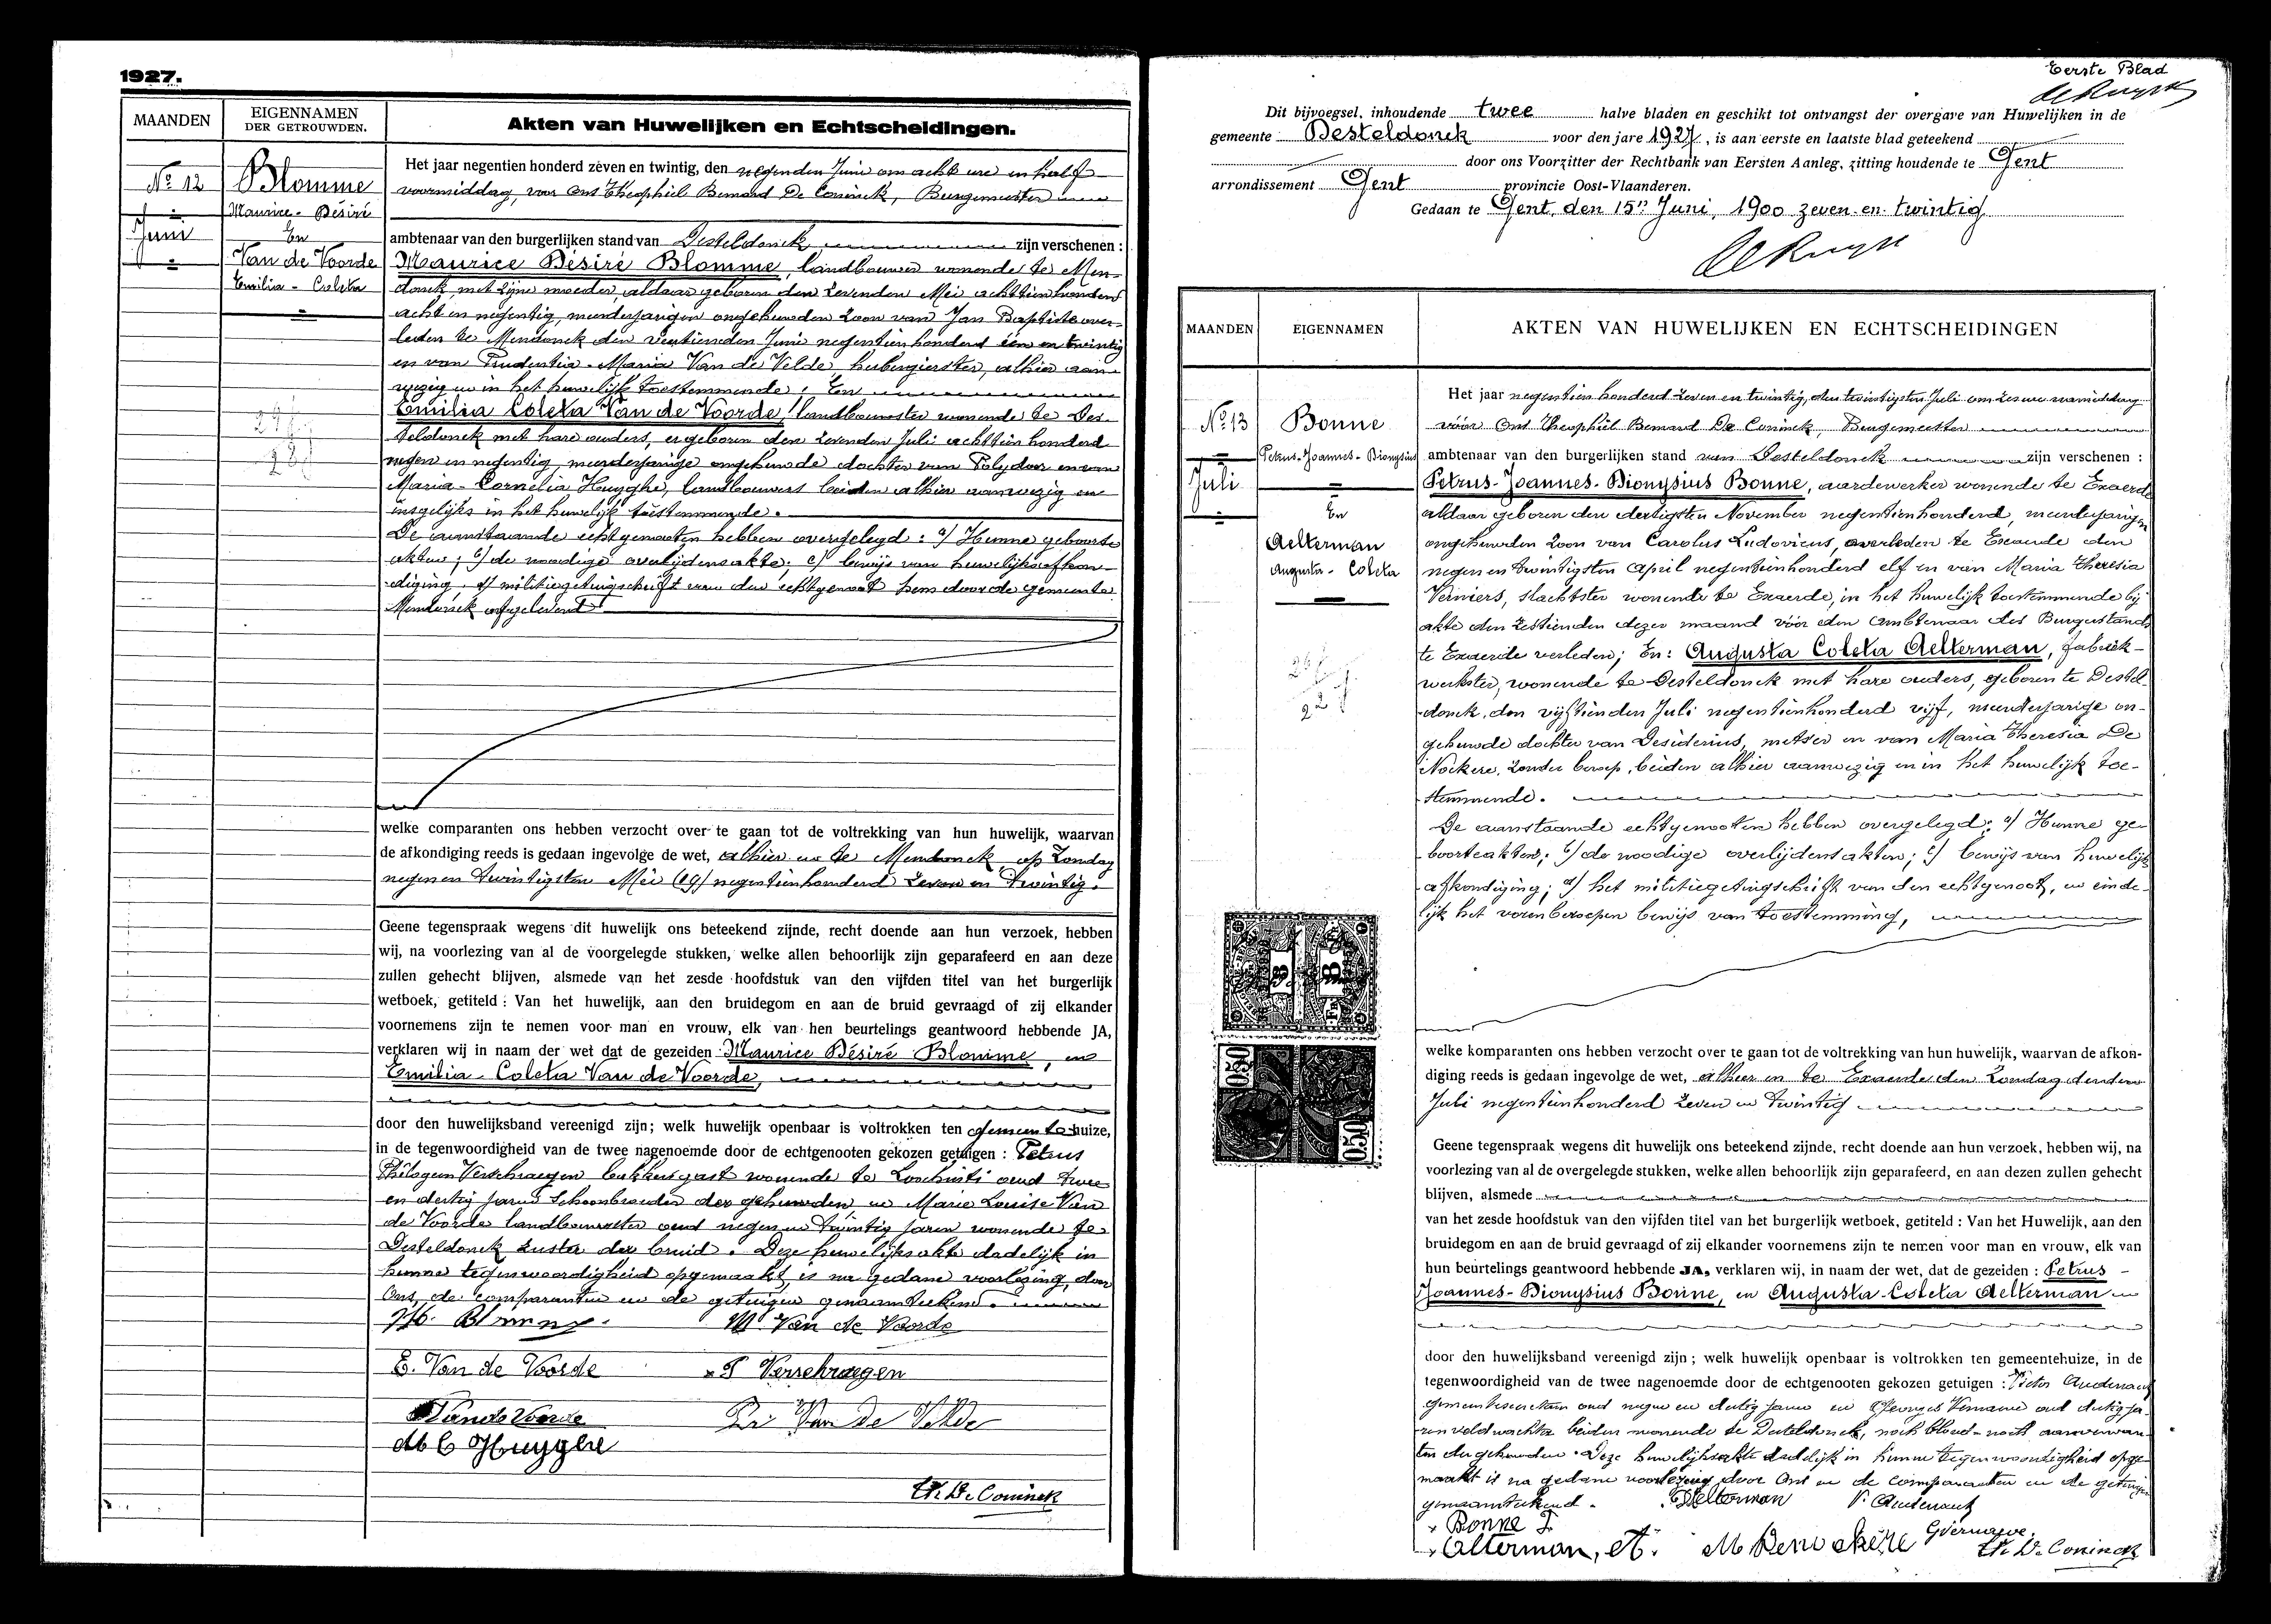 1927.
MAANDEN
EIGENNAMEN
DER GETROUWDEN.
Akten van Huwelijken en Echtscheidingen.
Nº 12
Juni
Blomme
Maurice - Désiré
En
Van de Voorde
Emilia - Coleta
Het jaar negentien honderd zeven en twintig, den negenden Juni om acht ure en half
voormiddag, voor Ons Theophiel Bernard De Coninck, Burgemeester
ambtenaar van den burgerlijken stand van Desteldonck zijn verschenen :
Maurice Désiré Blomme, landbouwer wonende te Men-
donck, met zijne moeder, aldaar geboren den zevenden Mei achttienhonderd
acht en negentig, meerderjarigen ongehuwden zoon van Jan Baptiste over-
leden te Mendonck den veertienden Juni negentienhonderd één en twintig
en van Prudentia - Maria Van de Velde herbergierster, alhier aan-
wezig en in het huwelijk toestemmende : En
Emilia Coleta Van de Voorde, landbouwster wonende te Des-
teldonck met hare ouders, er geboren den zevenden Juli achttien honderd
negen en negentig, meerderjarige ongehuwde dochter van Polydoor en van
Maria - Cornelia Huyghe, landbouwers beiden alhier aanwezig en
insgelijks in het huwelijk toestemmende.
De aanstaande echtgenooten hebben overgelegd : a) Hunne geboorte
akten ; b) de noodige overlijdensakte; c) bewijs van huwelijksafkon-
diging, d) militiegetuigschrift van den echtgenoot hem door de gemeente
Mendonck afgeleverd
welke comparanten ons hebben verzocht over te gaan tot de voltrekking van hun huwelijk, waarvan
de afkondiging reeds is gedaan ingevolge de wet, alhier en te Mendonck op Zondag
negen en twintigsten Mei (29) negentienhonderd zeven en twintig.
Geene tegenspraak wegens dit huwelijk ons beteekend zijnde, recht doende aan hun verzoek, hebben
wij, na voorlezing van al de voorgelegde stukken, welke allen behoorlijk zijn geparafeerd en aan deze
zullen gehecht blijven, alsmede van het zesde hoofdstuk van den vijfden titel van het burgerlijk
wetboek, getiteld : Van het huwelijk, aan den bruidegom en aan de bruid gevraagd of zij elkander
voornemens zijn te nemen voor man en vrouw, elk van hen beurtelings geantwoord hebbende JA,
verklaren wij in naam der wet dat de gezeiden Maurice Désiré Blomme, en
Emilia - Coleta Van de Voorde,
door den huwelijksband vereenigd zijn; welk huwelijk openbaar is voltrokken ten gemeentehuize,
in de tegenwoordigheid van de twee nagenoemde door de echtgenooten gekozen getuigen : Petrus
Philogoon Verschraegen bakkersgast wonende te Loochristi oud twee
en dertig jaren schoonbroeder der gehuwden, en Marie Louise Van
de Voorde landbouwster oud negen en twintig jaren wonende te
Desteldonck zuster der bruid. Deze huwelijksakte dadelijk in
hunne tegenwoordigheid opgemaakt, is na gedane voorlezing, door
Ons, de comparanten en de getuigen genaamteekend.
M. Blomme.
M. Van de Voorde
E. Van de Voorde
P Verschraegen
Vande Voorde
Pr Van De Velde
M C Huyghe
Th. De Coninck
Eerste Blad
Dit bijvoegsel, inhoudende twee halve bladen en geschikt tot ontvangst der overgave van Huwelijken in de
gemeente Desteldonck voor den jare 1927, is aan eerste en laatste blad geteekend
door ons Voorzitter der Rechtbank van Eersten Aanleg, zitting houdende te Gent
arrondissement Gent provincie Oost-Vlaanderen.
Gedaan te Gent, den 15n Juni, 1900 zeven en twintig
MAANDEN
EIGENNAMEN
AKTEN VAN HUWELIJKEN EN ECHTSCHEIDINGEN
Nº 13
Juli
Bonne
Petrus-Joannes-Dionysius
En
Aelterman
Augusta - Coleta
Het jaar negentien honderd zeven en twintig, den twintigsten Juli om zes ure namiddag
vóór Ons Theophiel Bernard De Coninck, Burgemeester
ambtenaar van den burgerlijken stand van Desteldonck zijn verschenen :
Petrus-Joannes-Dionysius Bonne, aardewerker wonende te Exaerde
aldaar geboren den dertigsten November negentienhonderd, meerderjarigen
ongehuwden zoon van Carolus Ludovicus, overleden te Exaerde den
negen en twintigsten April negentienhonderd elf en van Maria Theresia
Verniers, slachtster wonende te Exaerde, in het huwelijk toestemmende bij
akte den zestienden dezer maand vóór den Ambtenaar des Burgerstands
te Exaerde verleden; En: Augusta Coleta Aelterman, fabriek-
werkster, wonende te Desteldonck met hare ouders, geboren te Destel-
donck, den vijftienden Juli negentienhonderd vijf, meerderjarige on-
gehuwde dochter van Desiderius, metser en van Maria Theresia De
Nockere, zonder beroep, beiden alhier aanwezig en in het huwelijk toe-
stemmende.
De aanstaande echtgenooten hebben overgelegd: a) Hunne ge-
boorteakten; b) de noodige overlijdensakten; c) bewijs van huwelijk
afkondiging; d) het militiegetuigschrift van den echtgenoot, en einde-
lijk het vorenberoepen bewijs van toestemming,
0.50
0.50
welke komparanten ons hebben verzocht over te gaan tot de voltrekking van hun huwelijk, waarvan de afkon-
diging reeds is gedaan ingevolge de wet, alhier en te Exaerde den Zondag derden
Juli negentienhonderd zeven en twintig
Geene tegenspraak wegens dit huwelijk ons beteekend zijnde, recht doende aan hun verzoek, hebben wij, na
voorlezing van al de overgelegde stukken, welke allen behoorlijk zijn geparafeerd, en aan dezen zullen gehecht
blijven, alsmede
van het zesde hoofdstuk van den vijfden titel van het burgerlijk wetboek, getiteld : Van het Huwelijk, aan den
bruidegom en aan de bruid gevraagd of zij elkander voornemens zijn te nemen voor man en vrouw, elk van
hun beurtelings geantwoord hebbende JA, verklaren wij, in naam der wet, dat de gezeiden : Petrus -
Joannes-Dionysius Bonne, en Augusta-Coleta Aelterman
door den huwelijksband vereenigd zijn ; welk huwelijk openbaar is voltrokken ten gemeentehuize, in de
tegenwoordigheid van de twee nagenoemde door de echtgenooten gekozen getuigen : Pieter Audenaert
gemeentesecretaris oud negen en dertig jaren en Georges Vernaeve oud dertig ja-
ren veldwachter beiden wonende te Desteldonck, noch bloed- noch aanverwan-
ten der gehuwden. Deze huwelijksakte dadelijk in hunne tegenwoordigheid opge-
maakt is na gedane voorlezing door Ons en de comparanten en de getuigen
genaamteekend.
Aelterman
P. Audenaert
Bonne
GVernaeve
Alterman, A.
M Denockere
Th. De Coninck